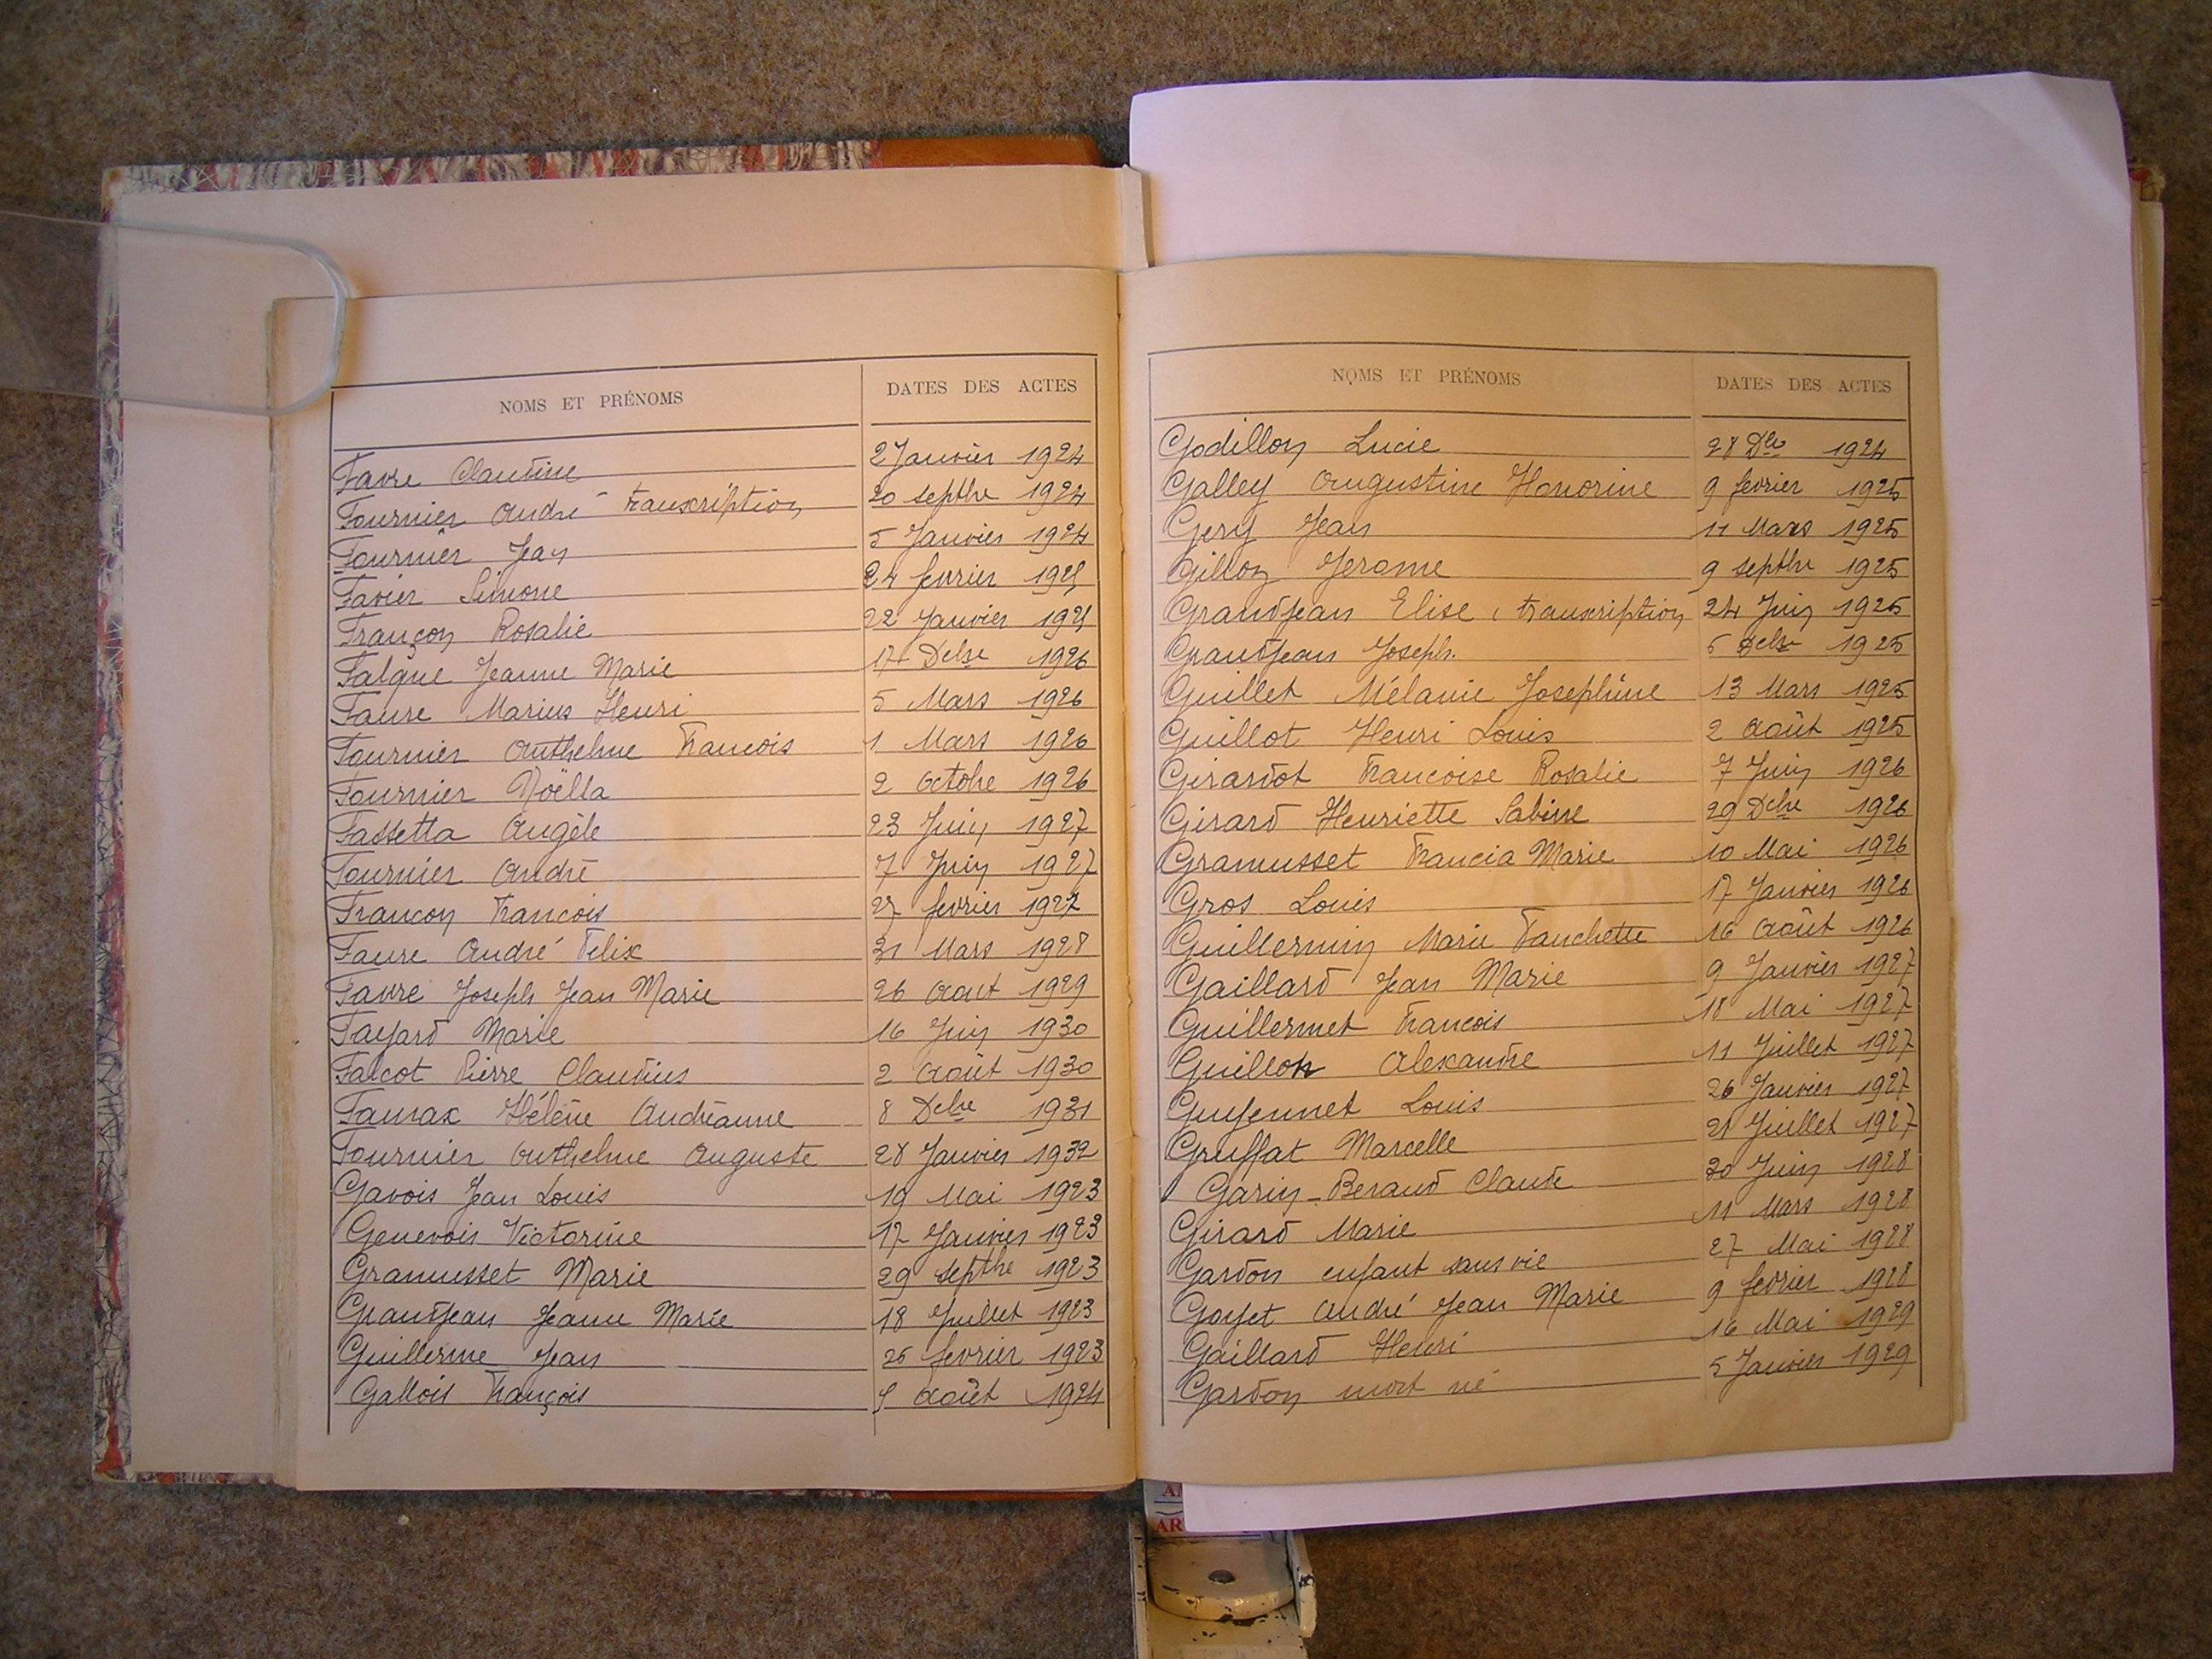 NOMS ET PRÉNOMS DATES DES ACTES
Favre Claudine 2 Janvier 1924
Fournier André transcription 20 septbre 1924
Fournier Jean 5 Janvier 1924
Favier Simone 24 fevrier 1925
Françon Rosalie 22 Janvier 1925
Falque Jeanne Marie 17 Dcbre 1926
Faure Marius Henri 5 Mars 1926
Fournier Anthelme Francois 1 Mars 1926
Fournier Noëlla 2 Octobre 1926
Fassetta Angèle 23 Juin 1927
Fournier André 7 Juin 1927
Francon Francois 27 fevrier 1927
Faure André Felix 31 Mars 1928
Favre Joseph Jean Marie 26 Aout 1929
Fayard Marie 16 Juin 1930
Falcot Pierre Claudius 2 Août 1930
Faurax Hélène Andréanne 8 Dcbre 1931
Fournier Anthelme Auguste 28 Janvier 1932
Gavois Jean Louis 19 Mai 1923
Genevois Victorine 17 Janvier 1923
Gramusset Marie 29 septbre 1923
Grandjean Jeanne Marie 18 Juillet 1923
Guillerme Jean 25 fevrier 1923
Gallois François Août 1924
NOMS ET PRÉNOMS DATES DES ACTES
Godillon Lucie 28 Dbre 1924
Galley Augustine Honorine 9 fevrier 1925
Gery Jean 11 Mars 1925
Gillon Jerome 9 septbre 1925
Grandjean Elise, transcription 24 Juin 1925
Grandjean Joseph. 5 Dcbre 1925
Guillet Mélanie Josephine 13 Mars 1925
Guillot Henri Louis 2 Août 1925
Girardot Francoise Rosalie 7 Juin 1926
Girard Henriette Sabine 29 Dcbre 1926
Gramusset Francia Marie 10 Mai 1926
Gros Louis 17 Janvier 1926
Guillermin Marie Fanchette 16 Août 1926
Gaillard Jean Marie 9 Janvier 1927
Guillermet Francois 18 Mai 1927
Guillon Alexandre 11 Juillet 1927
Guyennet Louis 26 Janvier 1927
Gruffat Marcelle 21 Juillet 1927
Garin-Beraud Claude 30 Juin 1928
Girard Marie 11 Mars 1928
Gardon enfant sans vie 27 Mai 1928
Goyet André Jean Marie 9 fevrier 1928
Gaillard Henri 16 Mai 1929
Gardon mort né 5 Janvier 1929